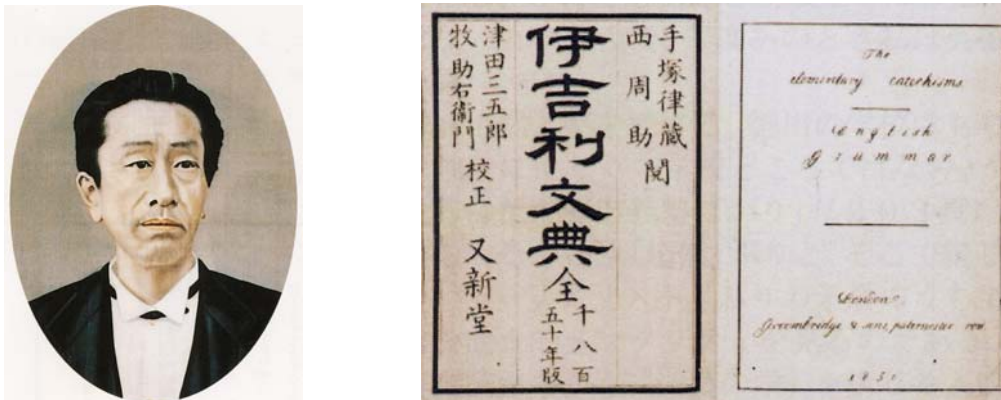 手塚律藏閲
西周助
伊吉利文典全
千八百
五十年版
津田三五郎
牧助右衞門
校正
又新堂
The
elementary catechisms
English
Grammar
London
Groombridge & sons, paternoster row